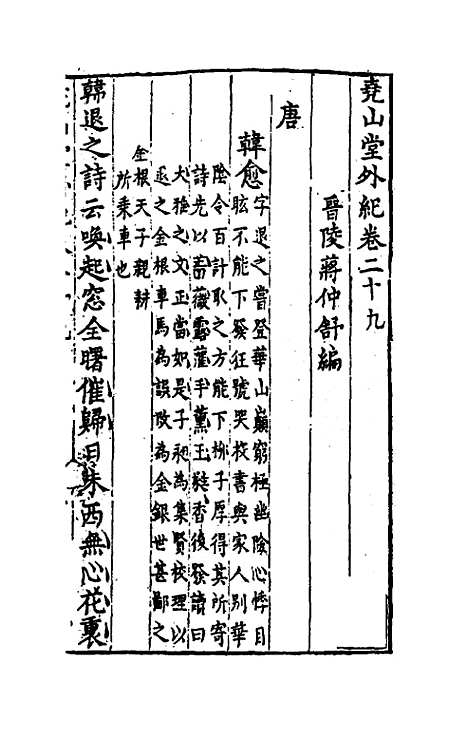 堯山堂外紀卷二十九
晉陵蔣仲舒編
唐
韓愈
字退之嘗登華山巔窮極幽險心悸目
眩不能下發狂號哭投書與家人別華
陰令百計取之方能下栁子厚得其所寄
詩先以薔薇露灌手薰玉蕤香後發讀曰
大雅之文正當如是子昶為集賢校理以
退之金根車馬為誤改為金銀世甚鄙之
金根天子親耕
所乘車也
韓退之詩云喚起窓全曙催歸日未西無心花裏